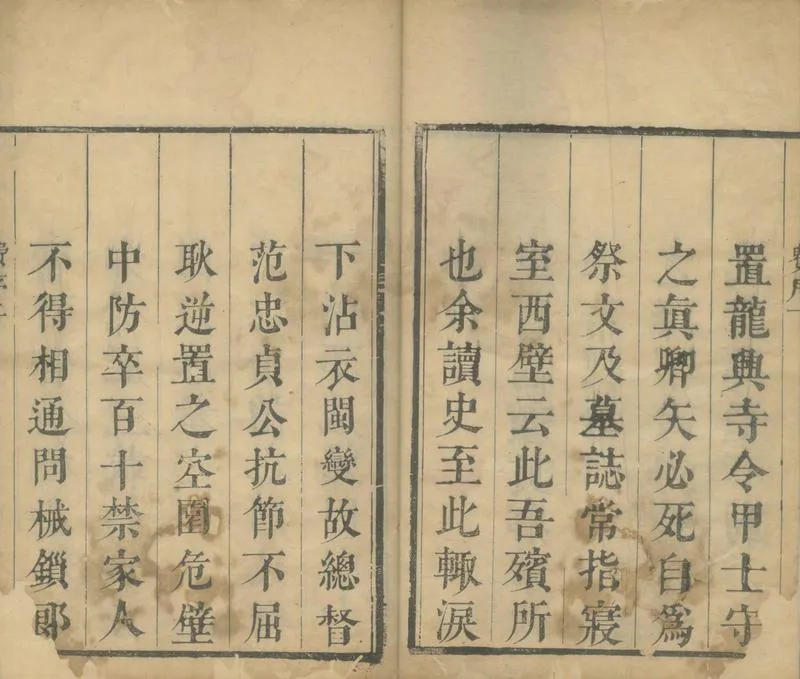 置龍興寺令甲士守
之眞卿矢必死自爲
祭文及墓誌常指寢
室西壁云此吾殯所
也余讀史至此輙淚
下沾衣閩變故總督
范忠貞公抗節不屈
耿逆置之空圄危壁
中防卒百十禁家人
不得相通問械鎖郎